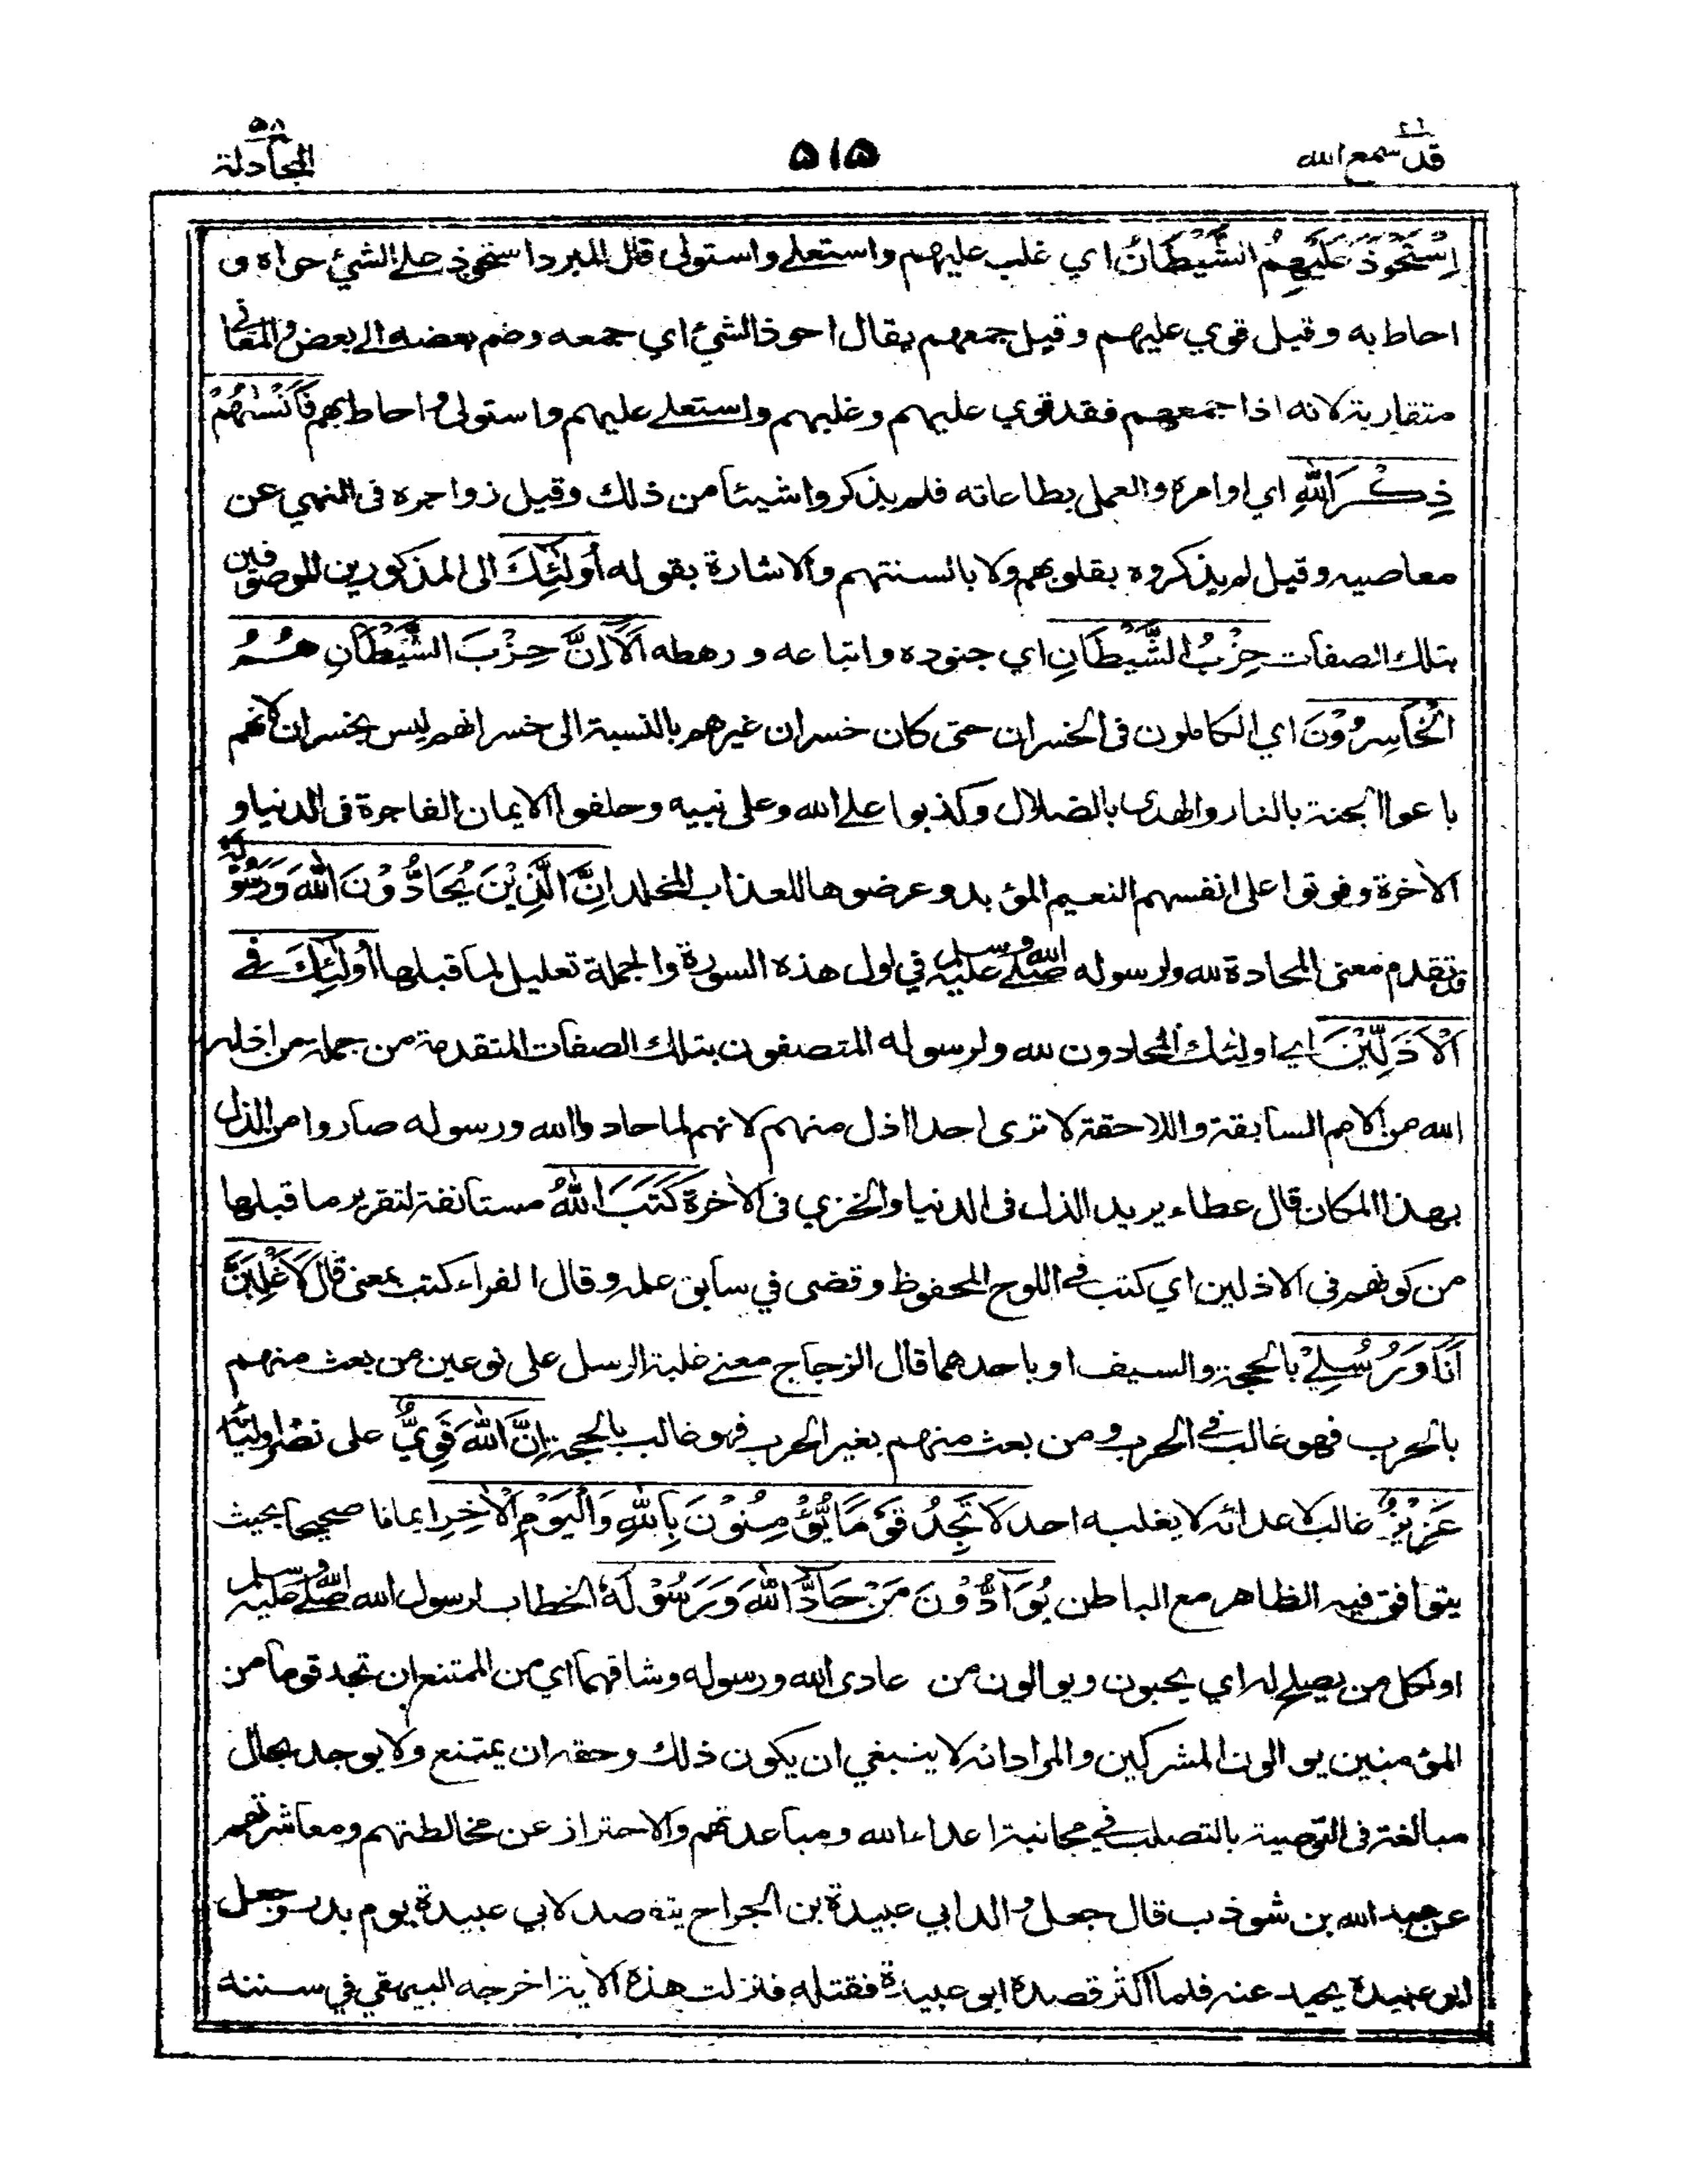 قد سمع الله ٥١٥ المجادلة ٥٨
اِسْتَحْوَذَ عَلَيْهِمُ الشَّيْطَانُ اي غلب عليهم واستعلے واستولى قال المبرد استحوذ علے الشيء حواه و
احاط به وقيل قوي عليهم وقيل جمعهم يقال احوذ الشيء اي جمعه وضم بعضه الے بعض والمعاني
متقاربة لانه اذا جمعهم فقد قوي عليهم وغلبهم واستعلے عليهم واستولى واحاط بهم فَاَنْسٰهُمْ
ذِكْرَ اللّٰهِ اي اوامره والعمل بطاعاته فلم يذكروا شيئا من ذلك وقيل زواجره فى النهي عن
معاصيه وقيل لم يذكروه بقلوبهم ولا بالسنتهم والاشارة بقوله اُولٰٓئِكَ الى المذكورين الموصوفين
بتلك الصفات حِزْبُ الشَّيْطَانِ اي جنوده واتباعه ورهطه اَلَآ اِنَّ حِزْبَ الشَّيْطَانِ هُمُ
الْخَاسِرُوْنَ اي الكاملون فى الخسران حتى كان خسران غيرهم بالنسبة الى خسرانهم ليس بخسران لانهم
باعوا الجنة بالنار والهدى بالضلال وكذبوا علے الله وعلى نبيه وحلفوا الايمان الفاجرة فى الدنيا و
الاخرة وفوتوا على انفسهم النعيم المؤبد وعرضوها للعذاب المخلد اِنَّ الَّذِيْنَ يُحَادُّوْنَ اللّٰهَ وَرَسُوْلَهٗ
قد تقدم معنى المحادة لله ولرسوله صلے الله عليه وسلم في اول هذه السورة والجملة تعليل لما قبلها اُولٰٓئِكَ فِے
الْاَذَلِّيْنَ اي اولئك المحادون لله ولرسوله المتصفون بتلك الصفات المتقدمة من جملة من اذله
الله من الامم السابقة واللاحقة لا ترى احدا اذل منهم لانهم لما حادوا الله ورسوله صاروا من الذل
بهذا المكان قال عطاء يريد الذل فى الدنيا والخزي فى الاخرة كَتَبَ اللّٰهُ مستانفة لتقرير ما قبلها
من كونهم فى الاذلين اي كتب فے اللوح المحفوظ وقضى في سابق علمه وقال الفراء كتب بمعنى قال لَاَغْلِبَنَّ
اَنَا وَرُسُلِيْ بالحجة والسيف او باحدهما قال الزجاج معنى غلبة الرسل على نوعين من بعث منهم
بالحرب فهو غالب فے الحرب ومن بعث منهم بغير الحرب فهو غالب بالحجة اِنَّ اللّٰهَ قَوِيٌّ على نصر اوليائه
عَزِيْزٌ غالب لاعدائه لا يغلبه احد لَا تَجِدُ قَوْمًا يُّؤْمِنُوْنَ بِاللّٰهِ وَالْيَوْمِ الْاٰخِرِ ايمانا صحيحا بحيث
يتوافق فيه الظاهر مع الباطن يُوَآدُّوْنَ مَنْ حَآدَّ اللّٰهَ وَرَسُوْلَهٗ الخطاب لرسول الله صلے الله عليه وسلم
او لكل من يصلح له اي يحبون ويوالون من عادى الله ورسوله وشاقهما اي من الممتنع ان تجد قوما من
المؤمنين يوالون المشركين والمراد انه لا ينبغي ان يكون ذلك وحقه ان يمتنع ولا يوجد بحال
مبالغة فى التوصية بالتصلب في مجانبة اعداء الله ومباعدتهم والاحتراز عن مخالطتهم ومعاشرتهم
عن عبد الله بن شوذب قال جعل والد ابي عبيدة بن الجراح يتقصد لابي عبيدة يوم بدر وجعل
ابو عبيدة يحيد عنه فلما اكثر قصده ابو عبيدة فقتله فنزلت هذه الاية اخرجه البيهقي في سننه